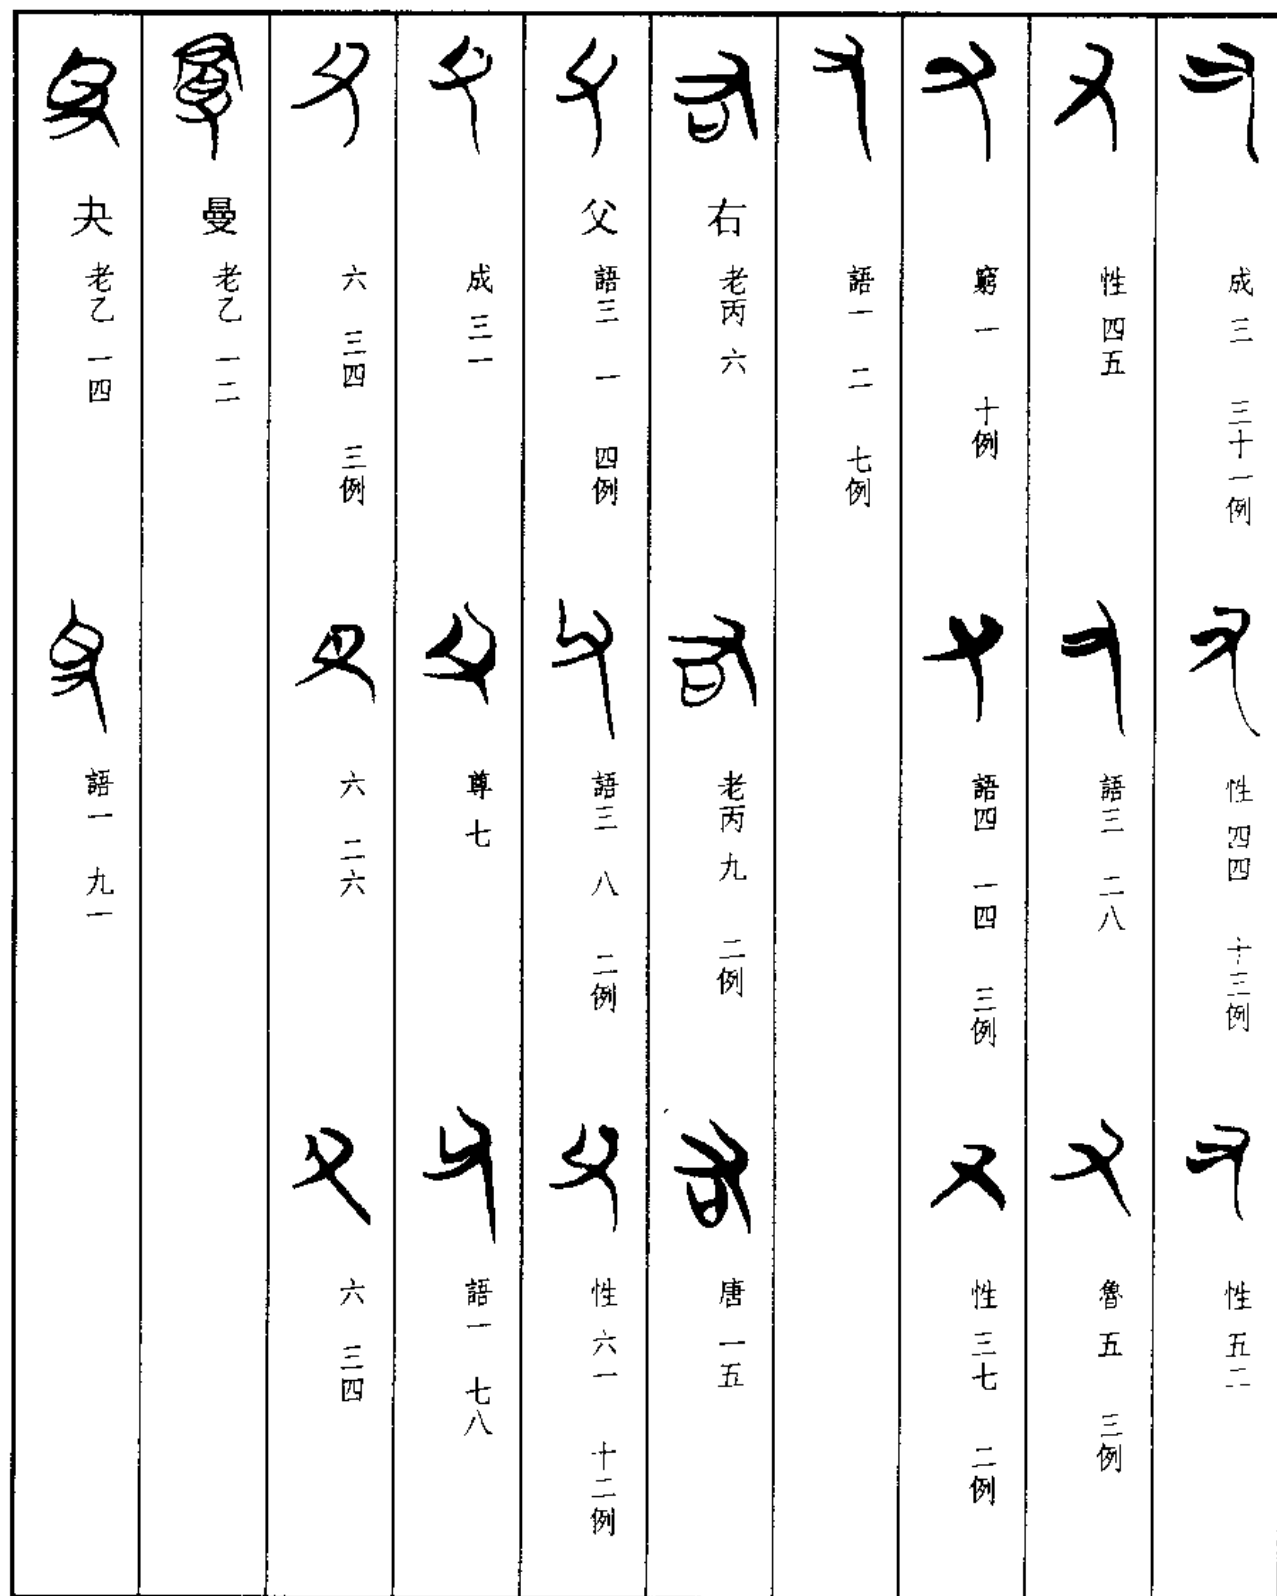 成 三 三十一例
性 四四 十三例
性 五二
性 四五
語三 二八
魯 五 三例
窮 一 十例
語四 一四 三例
性 三七 二例
語一 二 七例
右 老丙 六
老丙 九 二例
唐 一五
父 語三 一 四例
語三 八 二例
性 六一 十二例
成 三一
尊 七
語一 七八
六 三四 三例
六 二六
六 三四
曼 老乙 一二
夬 老乙 一四
語一 九一